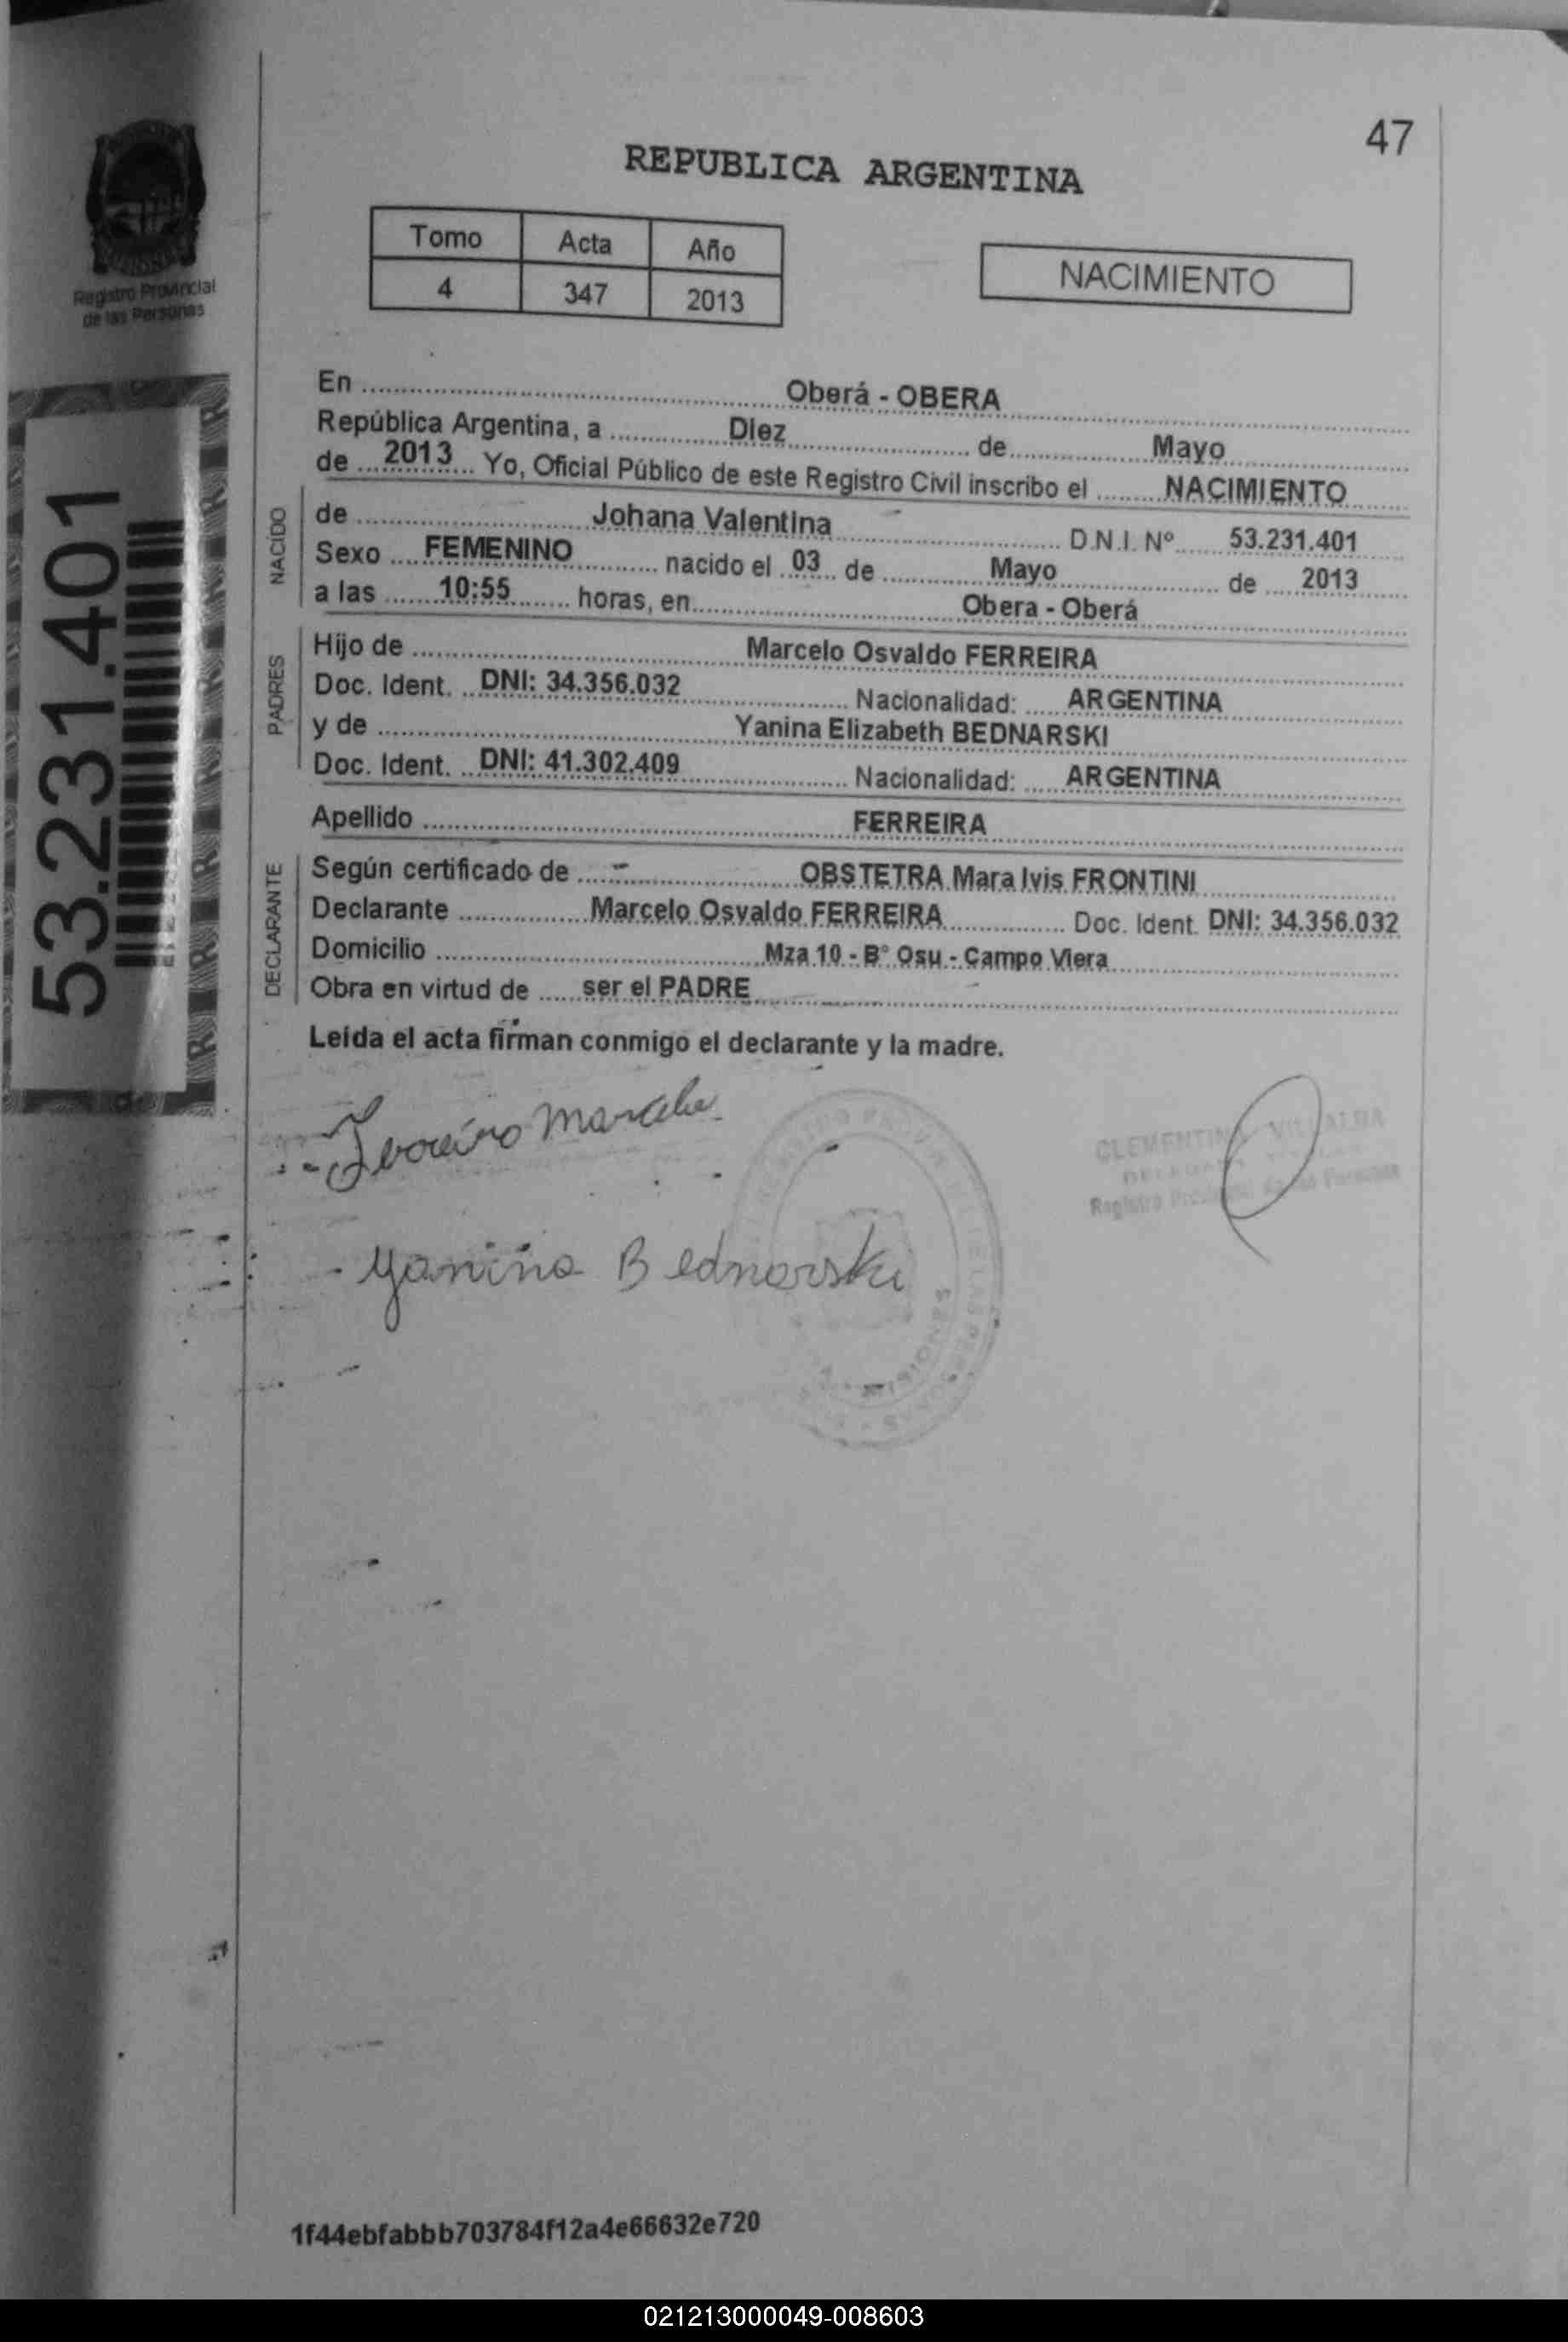 47
REPUBLICA ARGENTINA
Tomo Acta Año
4 347 2013
NACIMIENTO
Registro Provincial
de las Personas
53.231.401
En Oberá - OBERA
República Argentina, a Diez de Mayo
de 2013 Yo, Oficial Público de este Registro Civil inscribo el NACIMIENTO
NACIDO
de Johana Valentina D.N.I. Nº 53.231.401
Sexo FEMENINO nacido el 03 de Mayo de 2013
a las 10:55 horas, en Obera - Oberá
PADRES
Hijo de Marcelo Osvaldo FERREIRA
Doc. Ident. DNI: 34.356.032 Nacionalidad: ARGENTINA
y de Yanina Elizabeth BEDNARSKI
Doc. Ident. DNI: 41.302.409 Nacionalidad: ARGENTINA
Apellido FERREIRA
DECLARANTE
Según certificado de OBSTETRA Mara Ivis FRONTINI
Declarante Marcelo Osvaldo FERREIRA Doc. Ident. DNI: 34.356.032
Domicilio Mza 10 - B° Osu - Campo Viera
Obra en virtud de ser el PADRE
Leída el acta firman conmigo el declarante y la madre.
CLEMENTINA VILLALBA
Registro Provincial de las Personas
Yanina Bednarski
MISIONES
1f44ebfabbb703784f12a4e66632e720
021213000049-008603